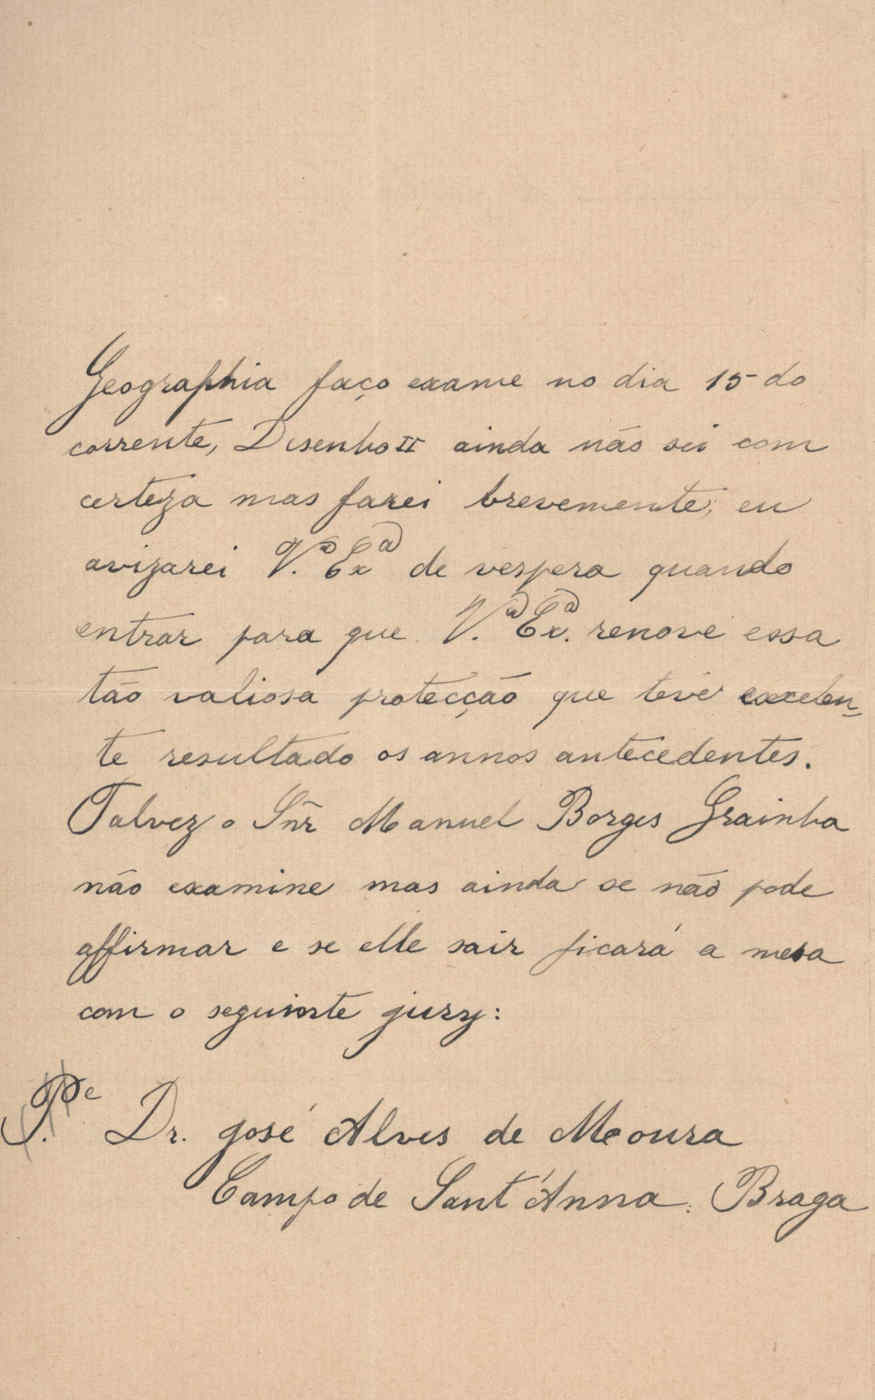 Geographia faço exame no dia 15 do
corrente, Desenho II ainda não sei com
certeza mas farei brevemente; eu
avizarei V.ª Ex.ª de vespera quando
entrar para que V.ª Ex.ª renove essa
tão valiosa protecção que teve excelen-
te resultado os annos antecedentes.
Talvez o Snr Manuel Borges Grainha
não examine mas ainda se não pode
affirmar e se elle sair ficará a mesa
com o seguinte jury:
P.e Dr. José Alves de Moura
Campo de Sant'Anna. Braga